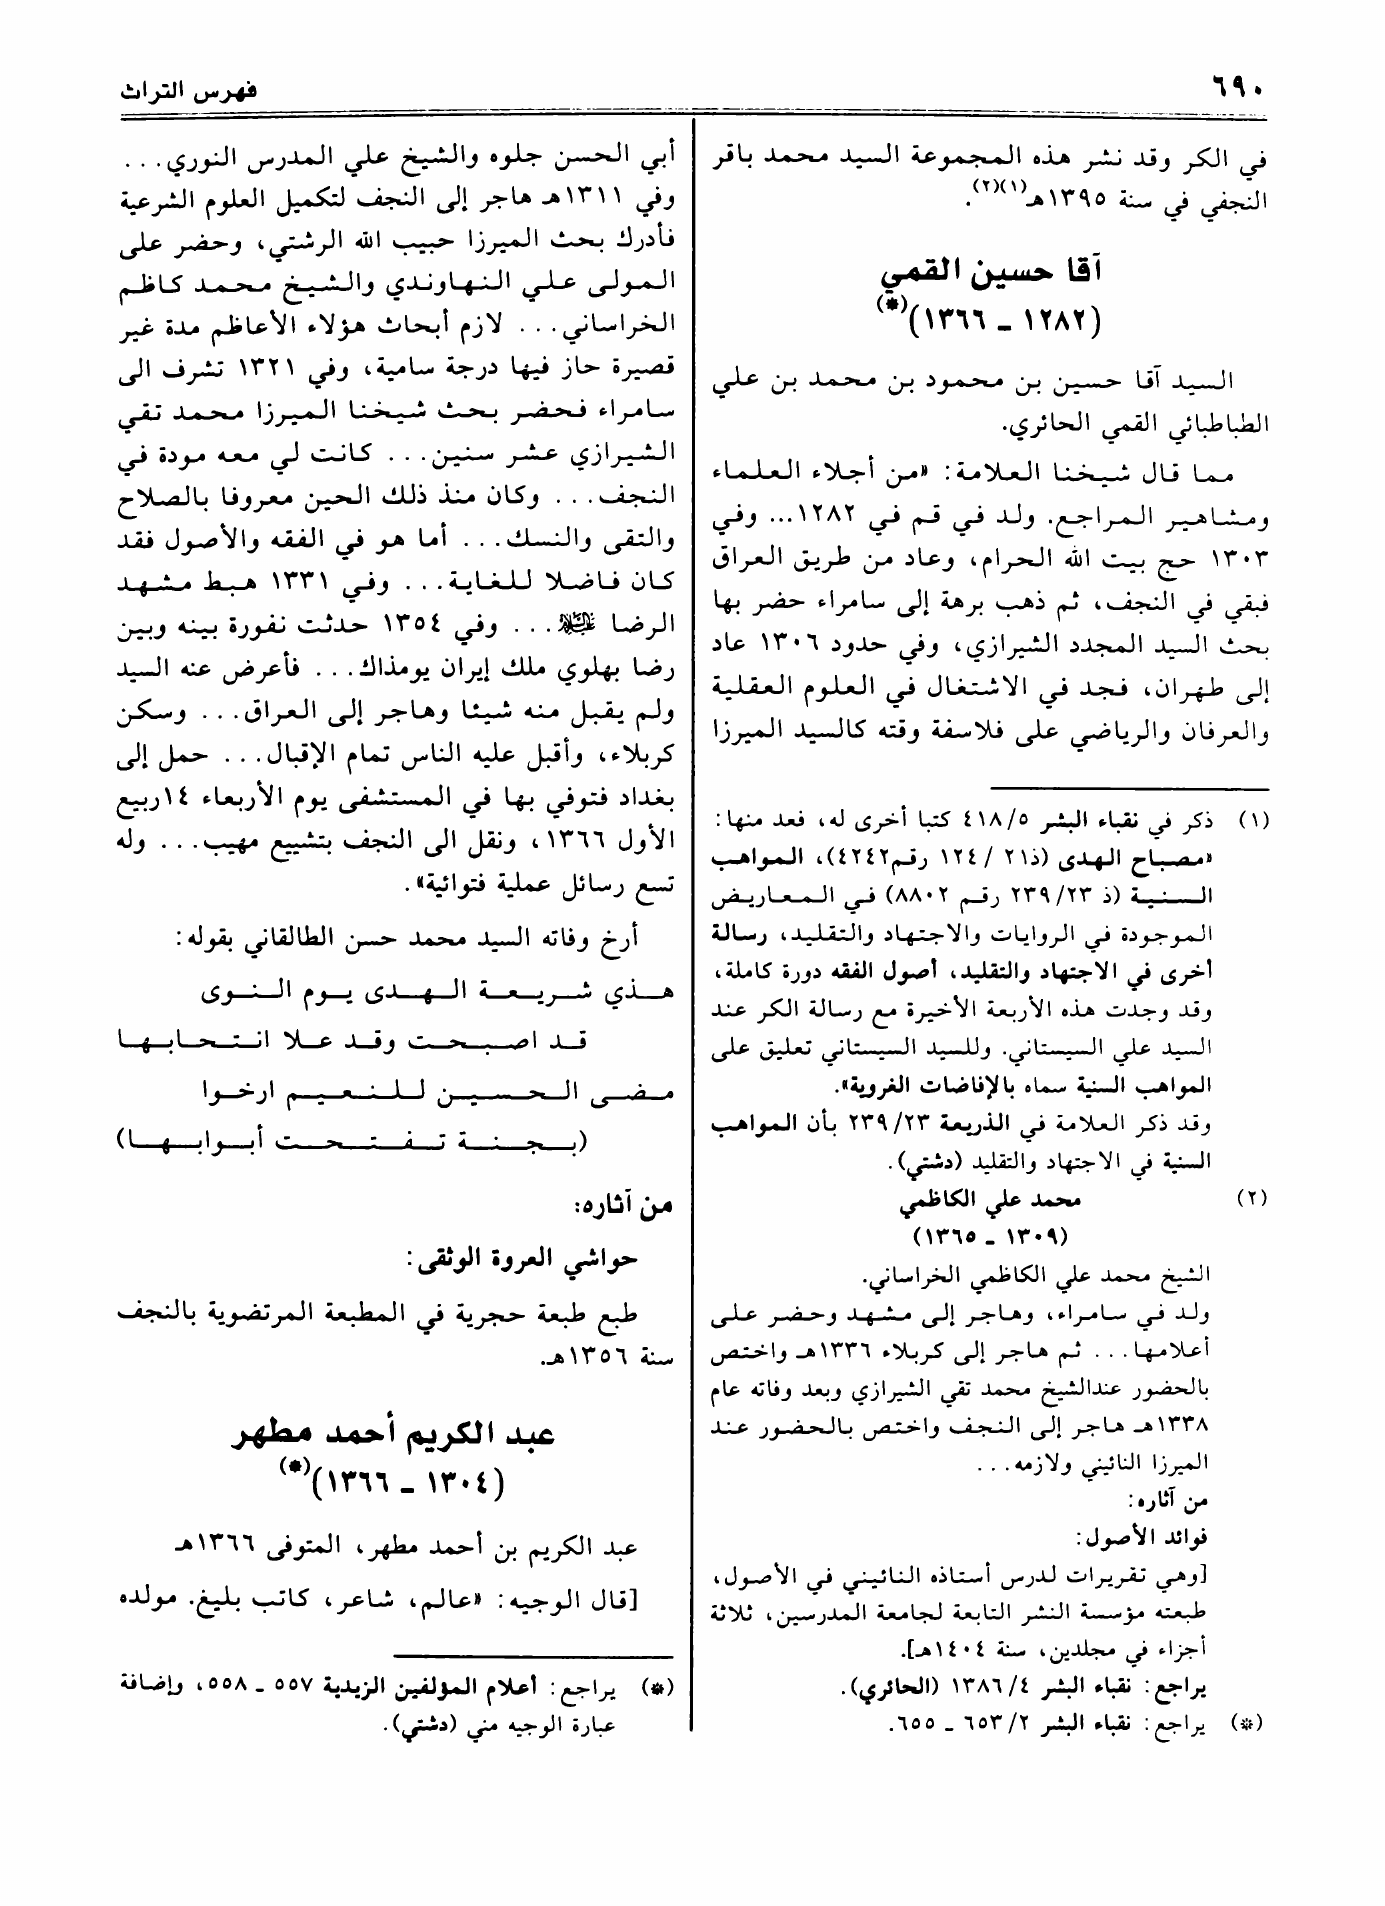 ٦٩٠
فهرس التراث
في الكر وقد نشر هذه المجموعة السيد محمد باقر
النجفي في سنة ١٣٩٥هـ(١)(٢).
آقا حسين القمي
(١٢٨٢ ـ ١٣٦٦)(*)
السيد آقا حسين بن محمود بن محمد بن علي
الطباطبائي القمي الحائري.
مما قال شيخنا العلامة: «من أجلاء العلماء
ومشاهير المراجع. ولد في قم في ١٢٨٢... وفي
١٣٠٣ حج بيت الله الحرام، وعاد من طريق العراق
فبقي في النجف، ثم ذهب برهة إلى سامراء حضر بها
بحث السيد المجدد الشيرازي، وفي حدود ١٣٠٦ عاد
إلى طهران، فجد في الاشتغال في العلوم العقلية
والعرفان والرياضي على فلاسفة وقته كالسيد الميرزا
(١) ذكر في نقباء البشر ٤١٨/٥ كتبا أخرى له، فعد منها:
«مصباح الهدى (ذ٢١ /١٢٤ رقم٤٢٤٢)، المواهب
السنية (ذ ٢٣٩/٢٣ رقم ٨٨٠٢) في المعاريض
الموجودة في الروايات والاجتهاد والتقليد، رسالة
أخرى في الاجتهاد والتقليد، أصول الفقه دورة كاملة،
وقد وجدت هذه الأربعة الأخيرة مع رسالة الكر عند
السيد علي السيستاني. وللسيد السيستاني تعليق على
المواهب السنية سماه بالإفاضات الغروية».
وقد ذكر العلامة في الذريعة ٢٣٩/٢٣ بأن المواهب
السنية في الاجتهاد والتقليد (دشتي).
(٢) محمد علي الكاظمي
(١٣٠٩ ـ ١٣٦٥)
الشيخ محمد علي الكاظمي الخراساني.
ولد في سامراء، وهاجر إلى مشهد وحضر على
أعلامها... ثم هاجر إلى كربلاء ١٣٣٦هـ واختص
بالحضور عندالشيخ محمد تقي الشيرازي وبعد وفاته عام
١٣٣٨هـ هاجر إلى النجف واختص بالحضور عند
الميرزا النائيني ولازمه...
من آثاره:
فوائد الأصول:
[وهي تقريرات لدرس أستاذه النائيني في الأصول،
طبعته مؤسسة النشر التابعة لجامعة المدرسين، ثلاثة
أجزاء في مجلدين، سنة ١٤٠٤هـ].
يراجع: نقباء البشر ١٣٨٦/٤ (الحائري).
(*) يراجع: نقباء البشر ٦٥٣/٢ ـ ٦٥٥.
أبي الحسن جلوه والشيخ علي المدرس النوري...
وفي ١٣١١هـ هاجر إلى النجف لتكميل العلوم الشرعية
فأدرك بحث الميرزا حبيب الله الرشتي، وحضر على
المولى علي النهاوندي والشيخ محمد كاظم
الخراساني... لازم أبحاث هؤلاء الأعاظم مدة غير
قصيرة حاز فيها درجة سامية، وفي ١٣٢١ تشرف الى
سامراء فحضر بحث شيخنا الميرزا محمد تقي
الشيرازي عشر سنين... كانت لي معه مودة في
النجف... وكان منذ ذلك الحين معروفا بالصلاح
والتقى والنسك... أما هو في الفقه والأصول فقد
كان فاضلا للغاية... وفي ١٣٣١ هبط مشهد
الرضا ﵇... وفي ١٣٥٤ حدثت نفورة بينه وبين
رضا بهلوي ملك إيران يومذاك... فأعرض عنه السيد
ولم يقبل منه شيئا وهاجر إلى العراق... وسكن
كربلاء، وأقبل عليه الناس تمام الإقبال... حمل إلى
بغداد فتوفي بها في المستشفى يوم الأربعاء ١٤ربيع
الأول ١٣٦٦، ونقل الى النجف بتشييع مهيب... وله
تسع رسائل عملية فتوائية».
أرخ وفاته السيد محمد حسن الطالقاني بقوله:
هذي شريعة الهدى يوم النوى
قد اصبحت وقد علا انتحابها
مضى الحسين للنعيم ارخوا
(بجنة تفتحت أبوابها)
من آثاره:
حواشي العروة الوثقى:
طبع طبعة حجرية في المطبعة المرتضوية بالنجف
سنة ١٣٥٦هـ.
عبد الكريم أحمد مطهر
(١٣٠٤ ـ ١٣٦٦)(*)
عبد الكريم بن أحمد مطهر، المتوفى ١٣٦٦هـ
[قال الوجيه: «عالم، شاعر، كاتب بليغ. مولده
(*) يراجع: أعلام المؤلفين الزيدية ٥٥٧ ـ ٥٥٨، وإضافة
عبارة الوجيه مني (دشتي).